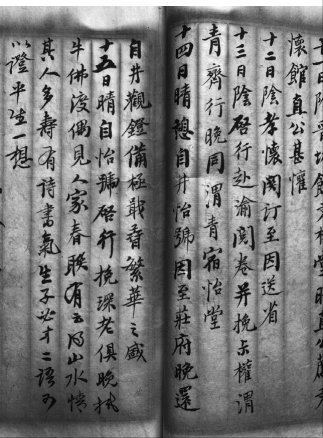 懷館直公甚懽
十二日陰孝懷閱訂至因送省
十三日陰啓行赴渝閱卷并挽卡櫂渭
青齊行晚同渭青宿怡堂
十四日晴憩自井怡號因至莊府晚還
自井觀鐙備極敢昏繁華之盛
十五日晴自怡號啓行挽深老俱晚抵
牛佛渡偶見人家春聯有云得山水情
其人多壽有詩書氣生子必才二語可
以證平生一想